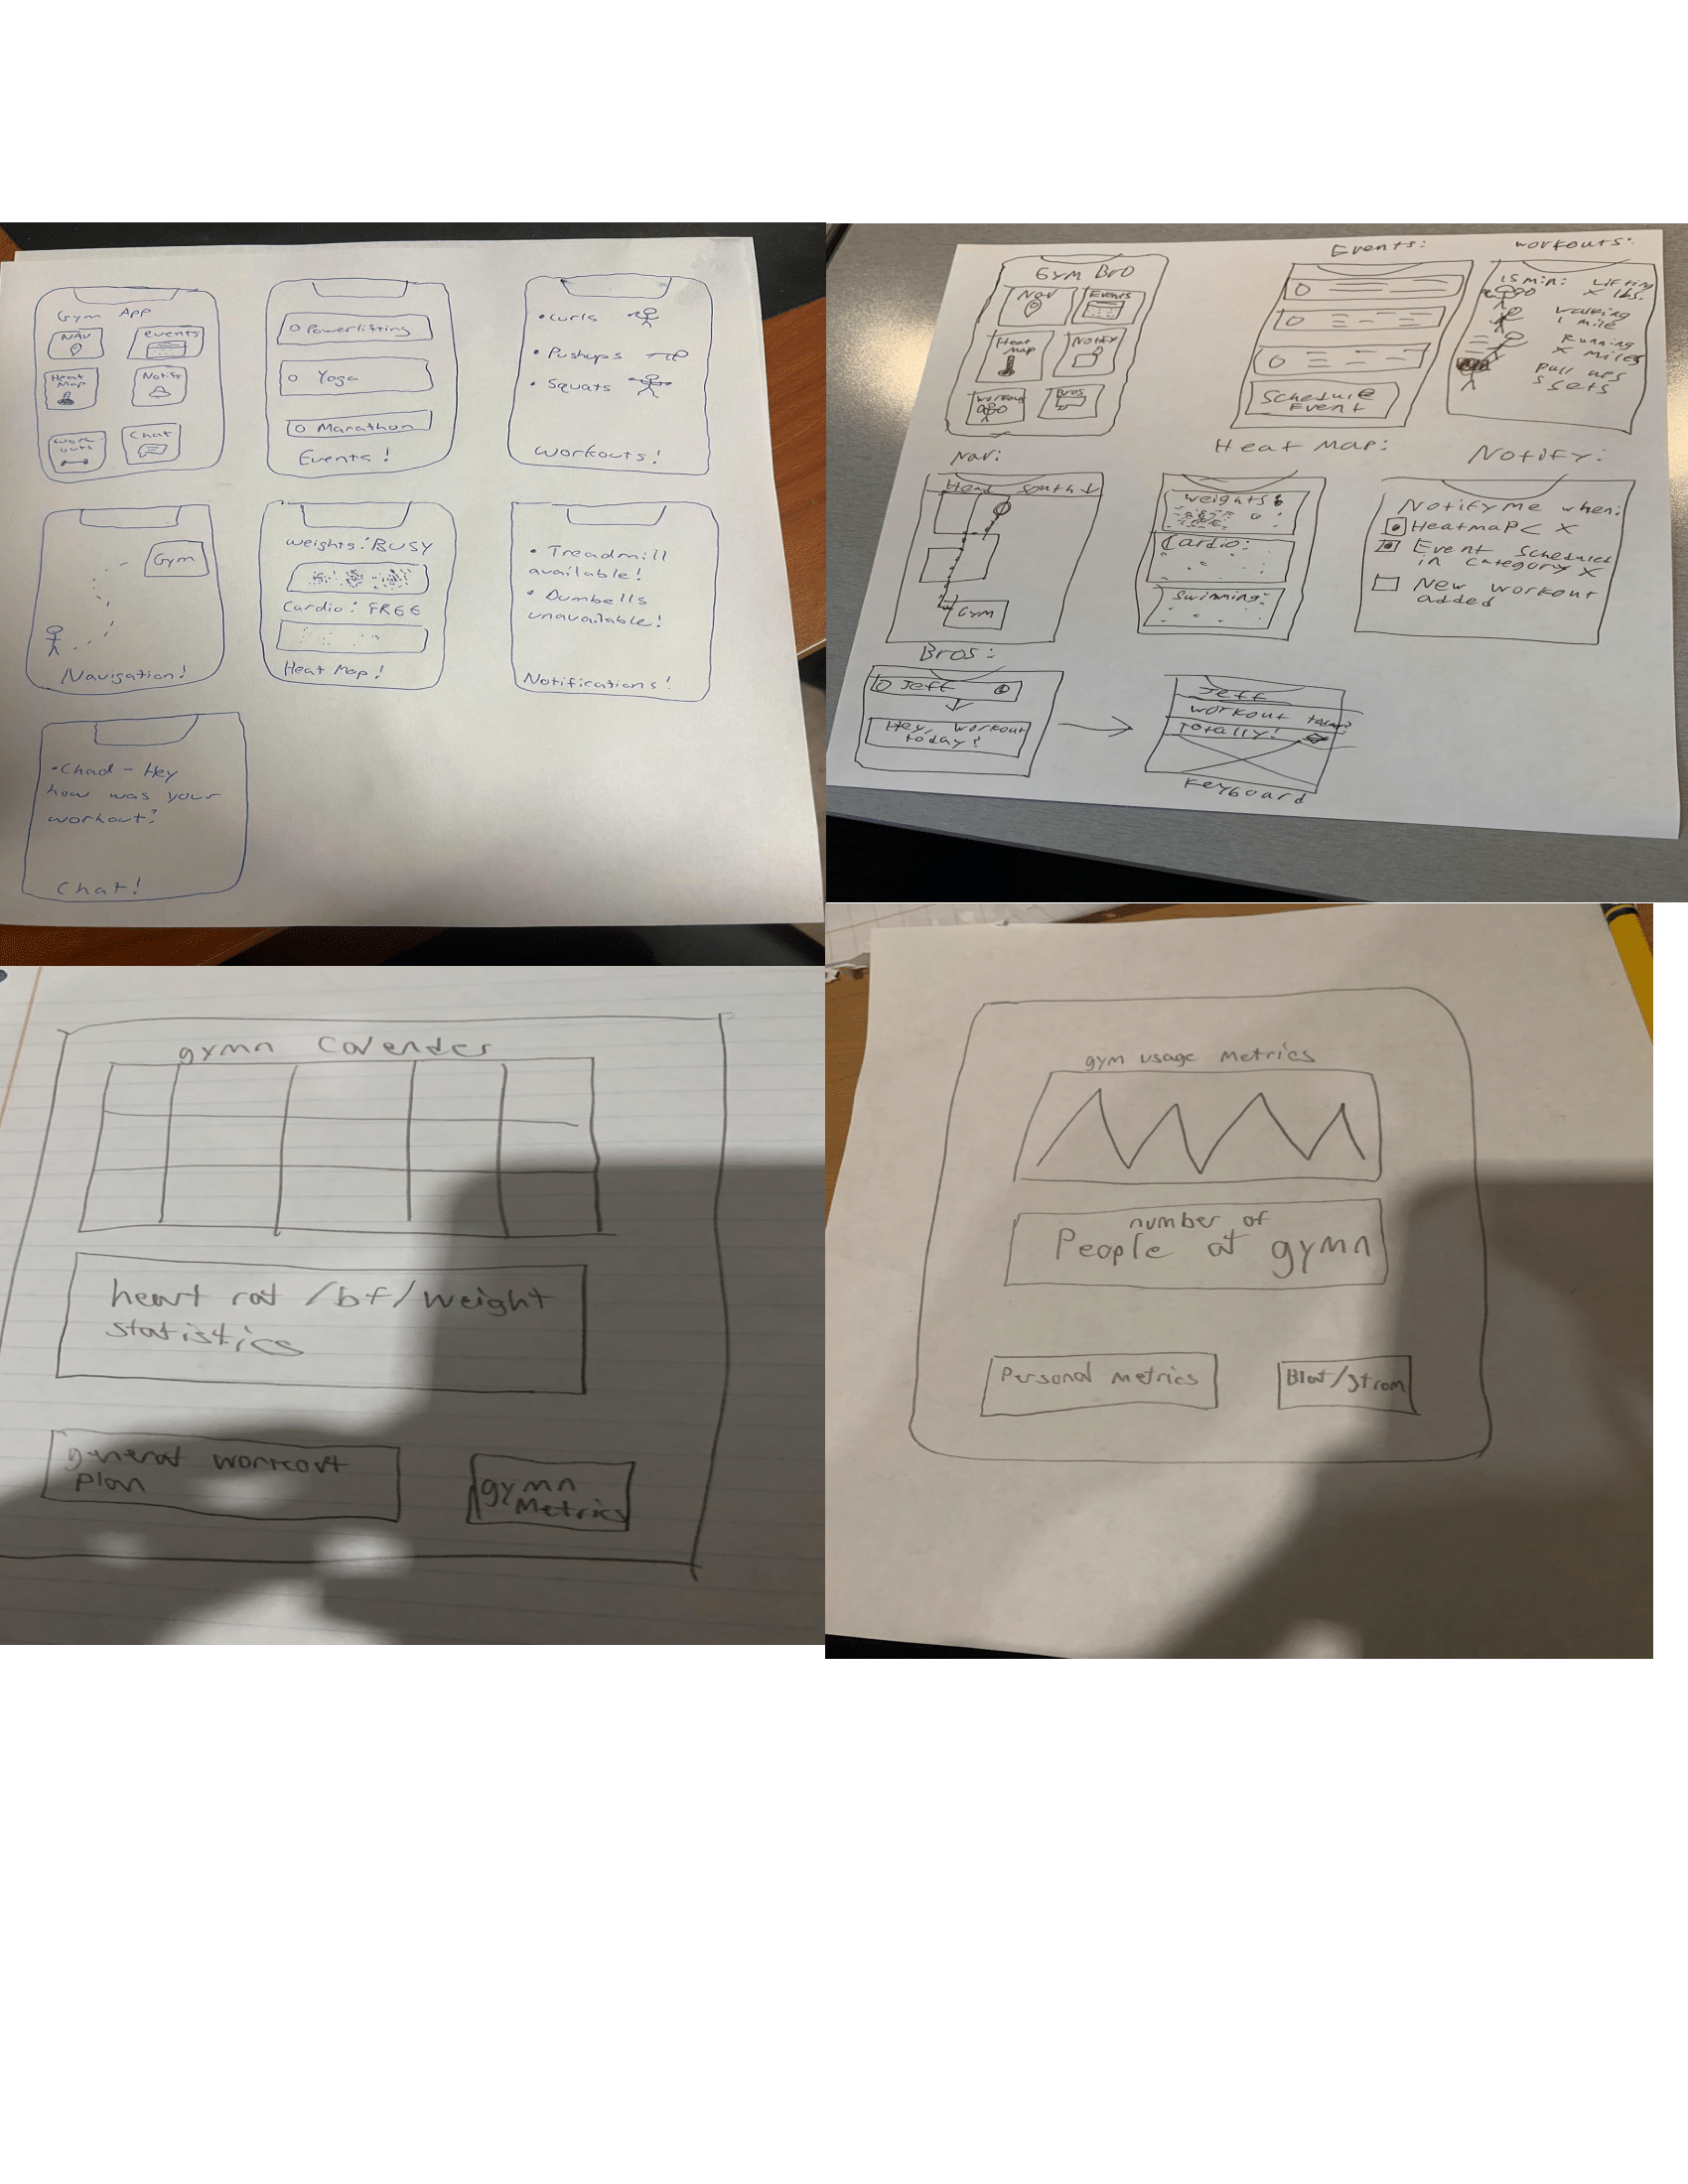 Gym App
NAV
events
Heat
Map
Notifs
work-
outs
Chat
Powerlifting
Yoga
Marathon
Events!
• Curls
• Pushups
• Squats
Workouts!
Gym
Navigation!
Weights: BUSY
Cardio: FREE
Heat Map!
• Treadmill
available!
• Dumbells
unavailable!
Notifications!
• Chad - Hey
how was your
workout?
Chat!
Gym Bro
Nav
Events
Heat
map
Notify
Workout
Bros
Events:
Schedule
Event
Workouts:
15 min: Lifting
X lbs.
walking
1 mile
Running
X miles
Pull ups
5 sets
Nav:
Head South ↓
Gym
Heat Map:
Weights:
Cardio:
Swimming:
Notify:
Notify me when:
Heatmap < X
Event Schedules
in category X
New workout
added
Bros:
Jeff
Hey, workout
today?
Jeff
workout today?
Totally!
Keyboard
gymn Calender
heart rat /bf/weight
statistics
general workout
plan
gymn
Metrics
gym usage metrics
number of
People at gymn
Personal metrics